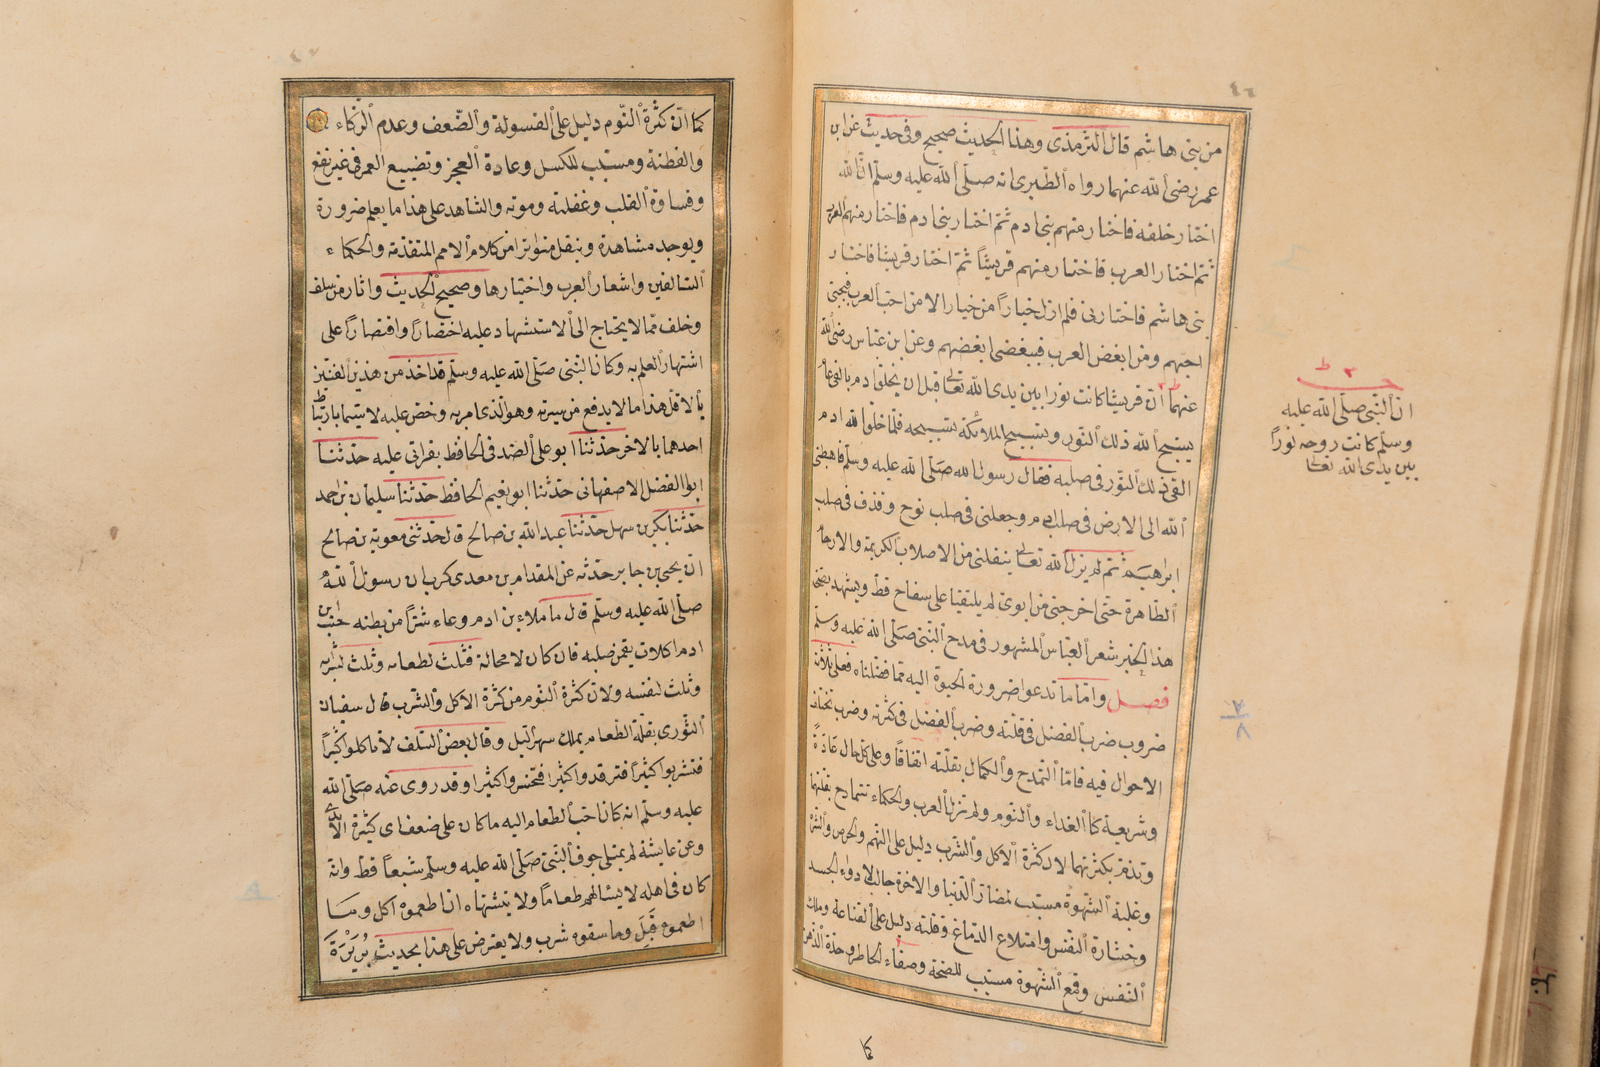 ٤٦
من بنى هاشم قال الترمذى وهذا الحديث صحيح وفى حديث عن ابن
عمر رضى الله عنهما رواه الطبرى انه صلى الله عليه وسلم ان الله
اختار خلقه فاختار منهم بنى ادم ثم اختار بنى ادم فاختار منهم العرب
ثم اختار العرب فاختار منهم قريشا ثم اختار قريشا فاختار
بنى هاشم فاختارنى فلم ازل خيارا من خيار الا من احب العرب فبحبى
احبهم ومن ابغض العرب فببغضى ابغضهم وعن ابن عباس رضى الله
عنهما ان قريشا كانت نورا بين يدى الله تعالى قبل ان يخلق ادم بالفى عام
يسبح الله ذلك النور وتسبح الملائكة بتسبيحه فلما خلق الله ادم
القى ذلك النور فى صلبه فقال رسول الله صلى الله عليه وسلم فاهبطنى
الله الى الارض فى صلب ادم وجعلنى فى صلب نوح وقذف فى صلب
ابراهيم ثم لم يزل الله تعالى ينقلنى من الاصلاب الكريمة والارحام
الطاهرة حتى اخرجنى من ابوى لم يلتقيا على سفاح قط ويشهد بصحة
هذا الخبر شعر العباس المشهور فى مدح النبى صلى الله عليه وسلم
فصل واما ما تدعو ضرورة الحيوة اليه مما فصلناه فعلى ثلاثة
ضروب ضرب الفضل فى قلته وضرب الفضل فى كثرته وضرب تختلف
الاحوال فيه فاما التمدح والكمال بقلته اتفاقا وعلى كل حال عادة
وشريعة كالغذاء والنوم ولم تزل العرب والحكماء تتمادح بقلتهما
وتذم بكثرتهما لان كثرة الاكل والشرب دليل على النهم والحرص والشره
وغلبة الشهوة مسبب لمضار الدنيا والاخرة جالب لادواء الجسد
وخثارة النفس وامتلاء الدماغ وقلته دليل على القناعة وملك
النفس وقمع الشهوة مسبب للصحة وصفاء الخاطر وحدة الذهن
كما
ان النبى صلى الله عليه
وسلم كانت روحه نورا
بين يدى الله تعالى
كما ان كثرة النوم دليل على الفسولة والضعف وعدم الزكاء
والفطنة ومسبب للكسل وعادة العجز وتضييع العمر فى غير نفع
وقساوة القلب وغفلته وموته والشاهد على هذا ما يعلم ضرورة
ويوجد مشاهدة وينقل متواترا من كلام الامم المتقدمة والحكماء
السالفين واشعار العرب واخبارها وصحيح الحديث واثار من سلف
وخلف مما لا يحتاج الى الاستشهاد عليه اختصارا واقتصارا على
اشتهار العلم به وكان النبى صلى الله عليه وسلم قد اخذ من هذين الفنين
بالاقل هذا ما لا يدفع من سيرته وهو الذى امر به وحض عليه لا سيما بارتباط
احدهما بالاخر حدثنا ابو على الصدفى الحافظ بقراتى عليه حدثنا
ابو الفضل الاصفهانى حدثنا ابو نعيم الحافظ حدثنا سليمان بن احمد
حدثنا بكر بن سهل حدثنا عبد الله بن صالح قال حدثنى معوية بن صالح
ان يحيى بن جابر حدثه عن المقدام بن معدى كرب ان رسول الله
صلى الله عليه وسلم قال ما ملاء بن ادم وعاء شرا من بطنه حسب ابن
ادم اكلات يقمن صلبه فان كان لا محالة فثلث لطعامه وثلث لشرابه
وثلث لنفسه ولان كثرة النوم من كثرة الاكل والشرب قال سفيان
الثورى بقلة الطعام يملك سهر الليل وقال بعض السلف لا تاكلوا كثيرا
فتشربوا كثيرا فترقدوا كثيرا فتخسروا كثيرا وقد روى عنه صلى الله
عليه وسلم انه كان احب الطعام اليه ما كان على ضفف اى كثرة الايدى
وعن عايشة لم يمتلى جوف النبى صلى الله عليه وسلم شبعا قط وانه
كان فى اهله لا يسالهم طعاما ولا يتشهاه ان اطعموه اكل وما
اطعموه قبل وما سقوه شرب ولا يعترض على هذا بحديث بريرة